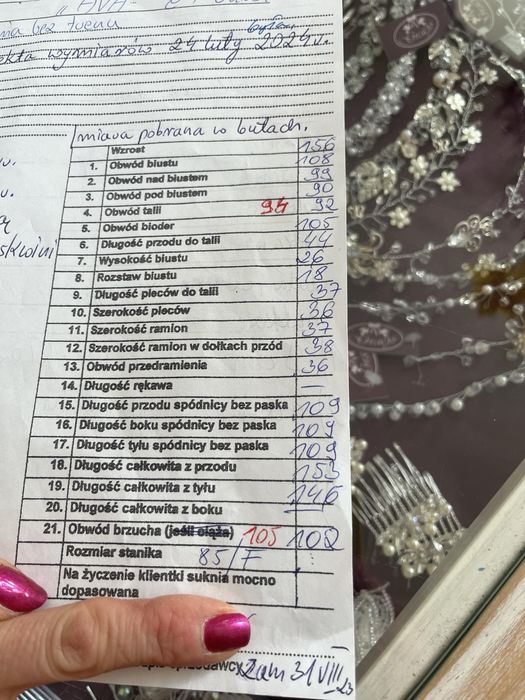 "AVA"
bez trenu
wymiarów 24 luty 2024r.
miara pobrana w butach.
Wzrost 156
1. Obwód biustu 108
2. Obwód nad biustem 99
3. Obwód pod biustem 90
4. Obwód talii 94 92
5. Obwód bioder 105
6. Długość przodu do talii 44
7. Wysokość biustu 26
8. Rozstaw biustu 18
9. Długość pleców do talii 37
10. Szerokość pleców 36
11. Szerokość ramion 37
12. Szerokość ramion w dołkach przód 38
13. Obwód przedramienia 36
14. Długość rękawa —
15. Długość przodu spódnicy bez paska 109
16. Długość boku spódnicy bez paska 109
17. Długość tyłu spódnicy bez paska 109
18. Długość całkowita z przodu 153
19. Długość całkowita z tyłu 146
20. Długość całkowita z boku
21. Obwód brzucha (jeśli ciąża) 105 102
Rozmiar stanika 85/F
Na życzenie klientki suknia mocno
dopasowana
sprzedawcy Zam 31 VIII
23